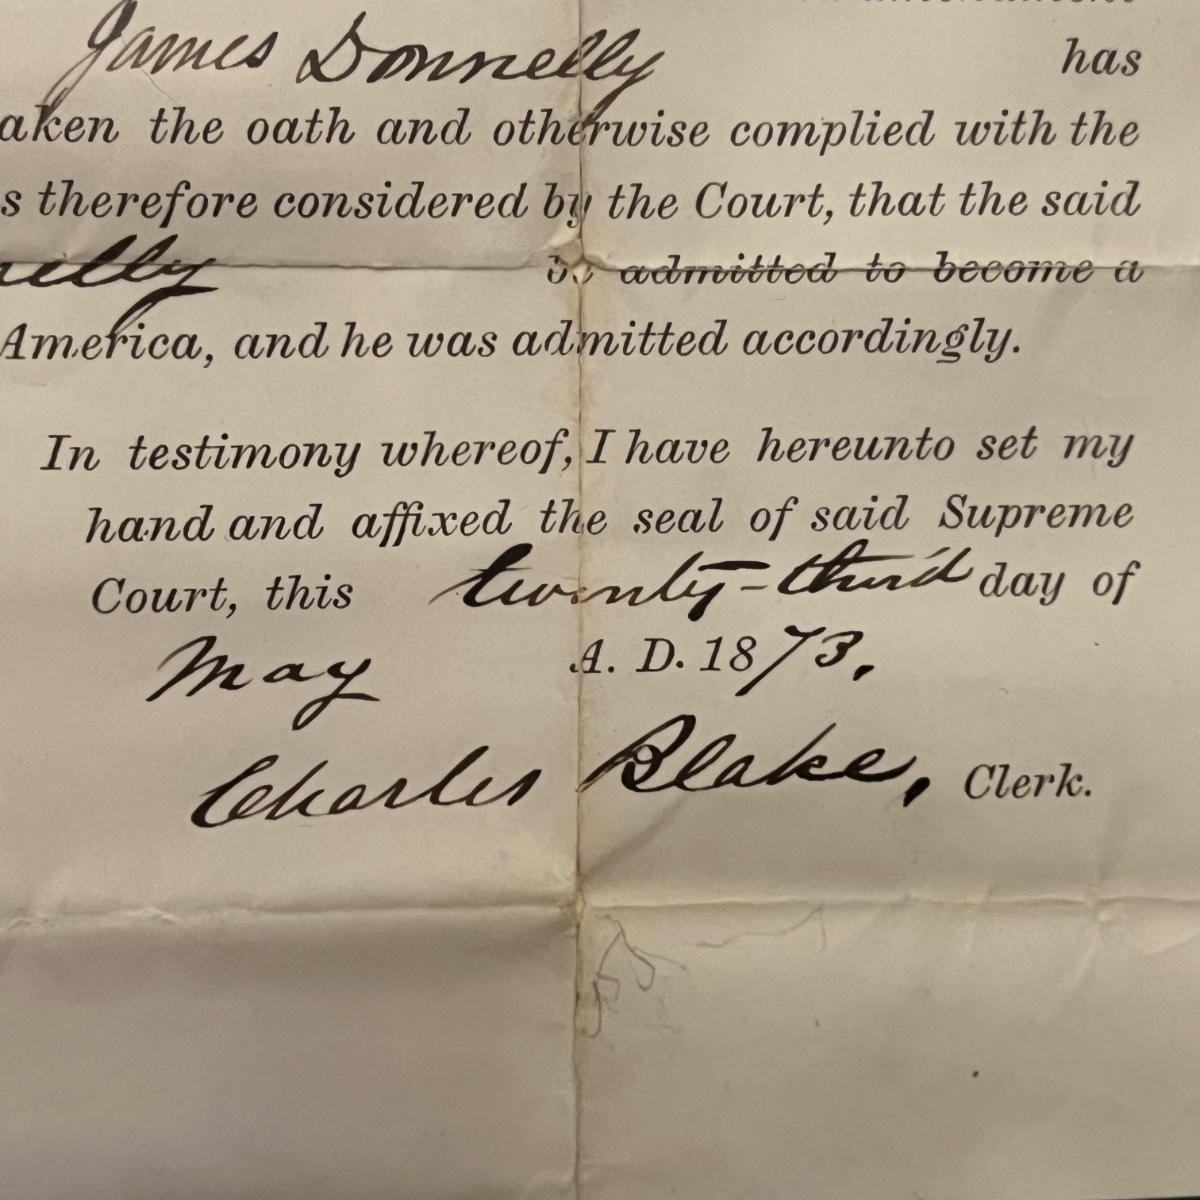 James Donnelly has
aken the oath and otherwise complied with the
s therefore considered by the Court, that the said
nelly be admitted to become a
America, and he was admitted accordingly.
In testimony whereof, I have hereunto set my
hand and affixed the seal of said Supreme
Court, this twenty-third day of
May A. D. 1873.
Charles Blake, Clerk.